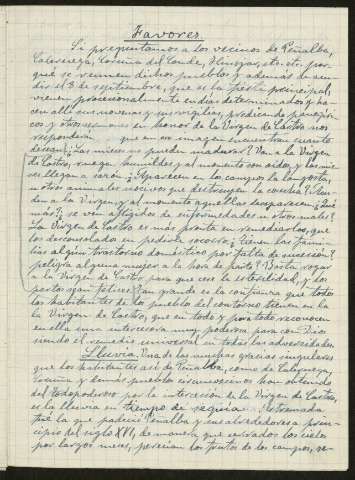 Favores.
Si preguntamos a los vecinos de Peñalba,
Caleruega, Coruña del Conde, Hinojar, etc. etc. por-
qué se reunen dichos pueblos y además de acu-
dir el 8 de septiembre, que es la fiesta principal,
vienen procesionalmente en dias determinados y ha-
cen allí sus novenas y sus vigilias, predican panegíri-
cos y otros sermones en honor de la Virgen de Castro nos
responderán que en esa imagen encuentran cuanto
desean. ¿Las mieses no pueden madurar? Van a la Virgen
de Castro, ruegan humildes y al momento son oidos, y las mie-
ses llegan a sazón. ¿Aparecen en los campos la langosta
u otros animales nocivos que destruyen la cosecha? Acu-
den a la Virgen y al momento aquellas desaparecen. ¿Qué
más? ¿se ven afligidos de enfermedades u otros males?
La Virgen de Castro es más pronta en remediarlos, que
los desconsolados en pedirla socorro. ¿tienen las fami-
lias algún trastorno doméstico por falta de sucesión?
¿peligra alguna mujer a la hora de parto? Basta rogar
a la Virgen de Castro para que cese la esterilidad, y los
partos sean felices. Tan grande es la confianza que todos
los habitantes de los pueblos del contorno tienen en la
la Virgen de Castro, que en todo y para todo reconocen
en ella una intercesora muy poderosa para con Dios
siendo el remedio universal en todas las adversidades.
Lluvia. Una de las muchas gracias singulares
que los habitantes así de Peñalba, como de Caleruega,
Coruña y demás pueblos circunvecinos han obtenido
del todopoderoso por la intercesión de la Virgen de Castro,
es la lluvia en tiempo de sequía. Extremada
fué la que padeció Peñalba y sus alrededores a prin-
cipio del siglo XVI, de manera que cerrados los cielos
por largos meses, perecían los frutos de los campos, se-